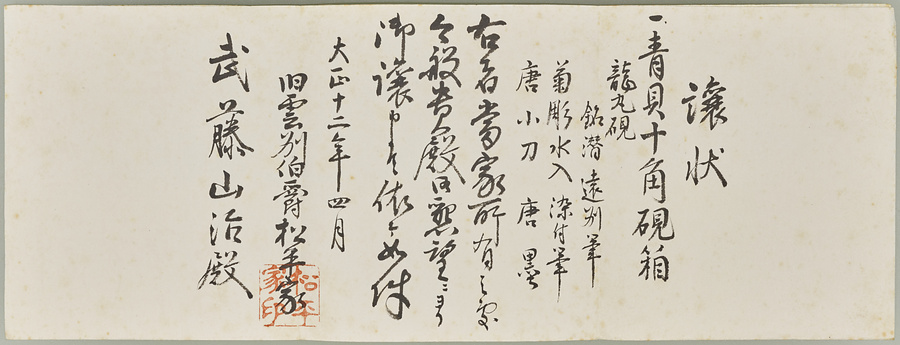 譲状
一、青貝十角硯箱
龍丸硯
銘潜 遠州筆
菊彫水入 染付筆
唐小刀 唐墨
右者当家所有之処
今般貴殿御懇望ニヨリ
御譲申候依而如件
大正十二年四月
旧雲州伯爵松平家
松平家印
武藤山治殿